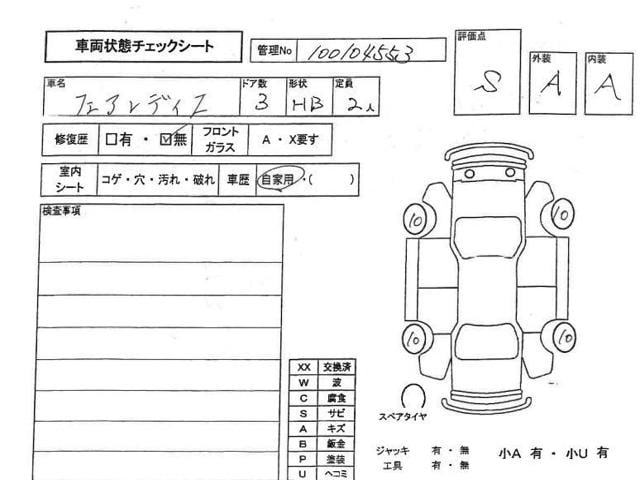 車両状態チェックシート 管理No 100104553
評価点 S 外装 A 内装 A
車名 フェアレディZ ドア数 3 形状 HB 定員 2人
修復歴 □有・☑無 フロントガラス A・X要す
室内シート コゲ・穴・汚れ・破れ 車歴 自家用・( )
検査事項
10 10
10 10
XX 交換済
W 波
C 腐食
S サビ
A キズ
B 鈑金
P 塗装
U ヘコミ
スペアタイヤ
ジャッキ 有・無
工具 有・無
小A 有・小U 有